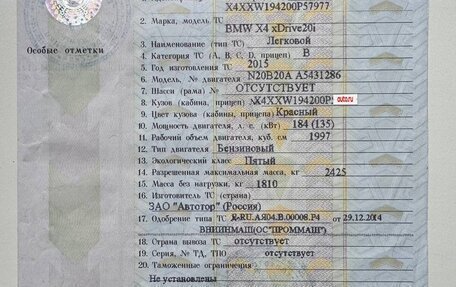 X4XXW194200P57977
2. Марка, модель ТС
BMW X4 xDrive20i
3. Наименование (тип ТС) Легковой
Особые отметки
4. Категория ТС (A, B, C, D, прицеп) B
5. Год изготовления ТС 2015
6. Модель, № двигателя N20B20A A5431286
7. Шасси (рама) № ОТСУТСТВУЕТ
8. Кузов (кабина, прицеп) X4XXW194200P auto.ru
9. Цвет кузова (кабины, прицепа) Красный
10. Мощность двигателя, л. с. (кВт) 184 (135)
11. Рабочий объем двигателя, куб. см 1997
12. Тип двигателя Бензиновый
13. Экологический класс Пятый
14. Разрешенная максимальная масса, кг 2425
15. Масса без нагрузки, кг 1810
16. Изготовитель ТС (страна)
ЗАО "Автотор" (Россия)
17. Одобрение типа ТС № E-RU.АЯ04.B.00008.P4 от 29.12.2014
ВНИИНМАШ(ОС"ПРОММАШ")
18. Страна вывоза ТС отсутствует
19. Серия, № ТД, ТПО отсутствует
20. Таможенные ограничения
Не установлены